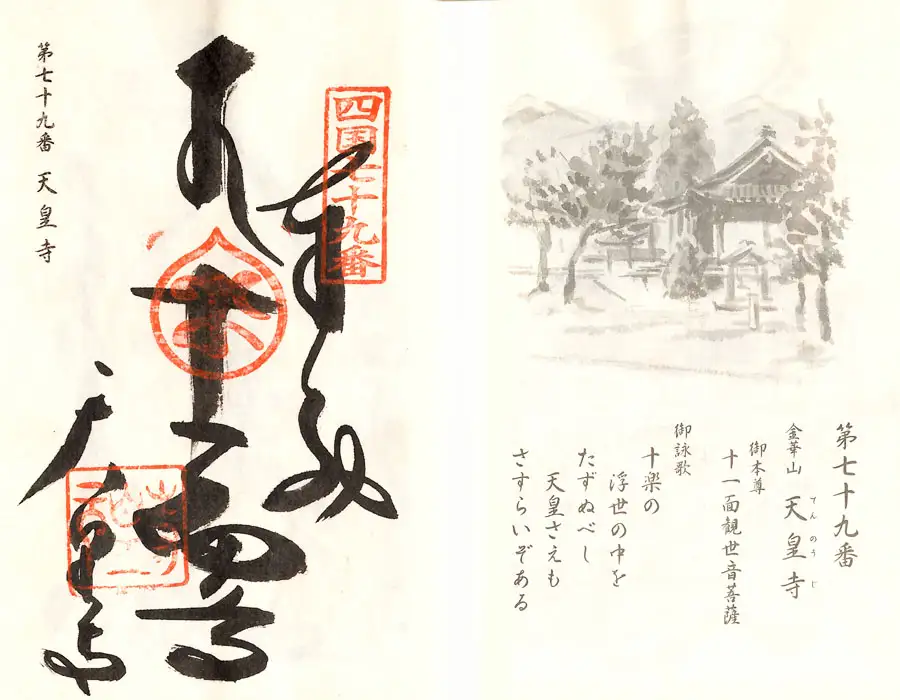 第七十九番
金華山 天皇寺
てんのうじ
御本尊
十一面観世音菩薩
御詠歌
十楽の
浮世の中を
たずぬべし
天皇さえも
さすらいぞある
四国七十九番
奉納
天皇寺
第七十九番 天皇寺